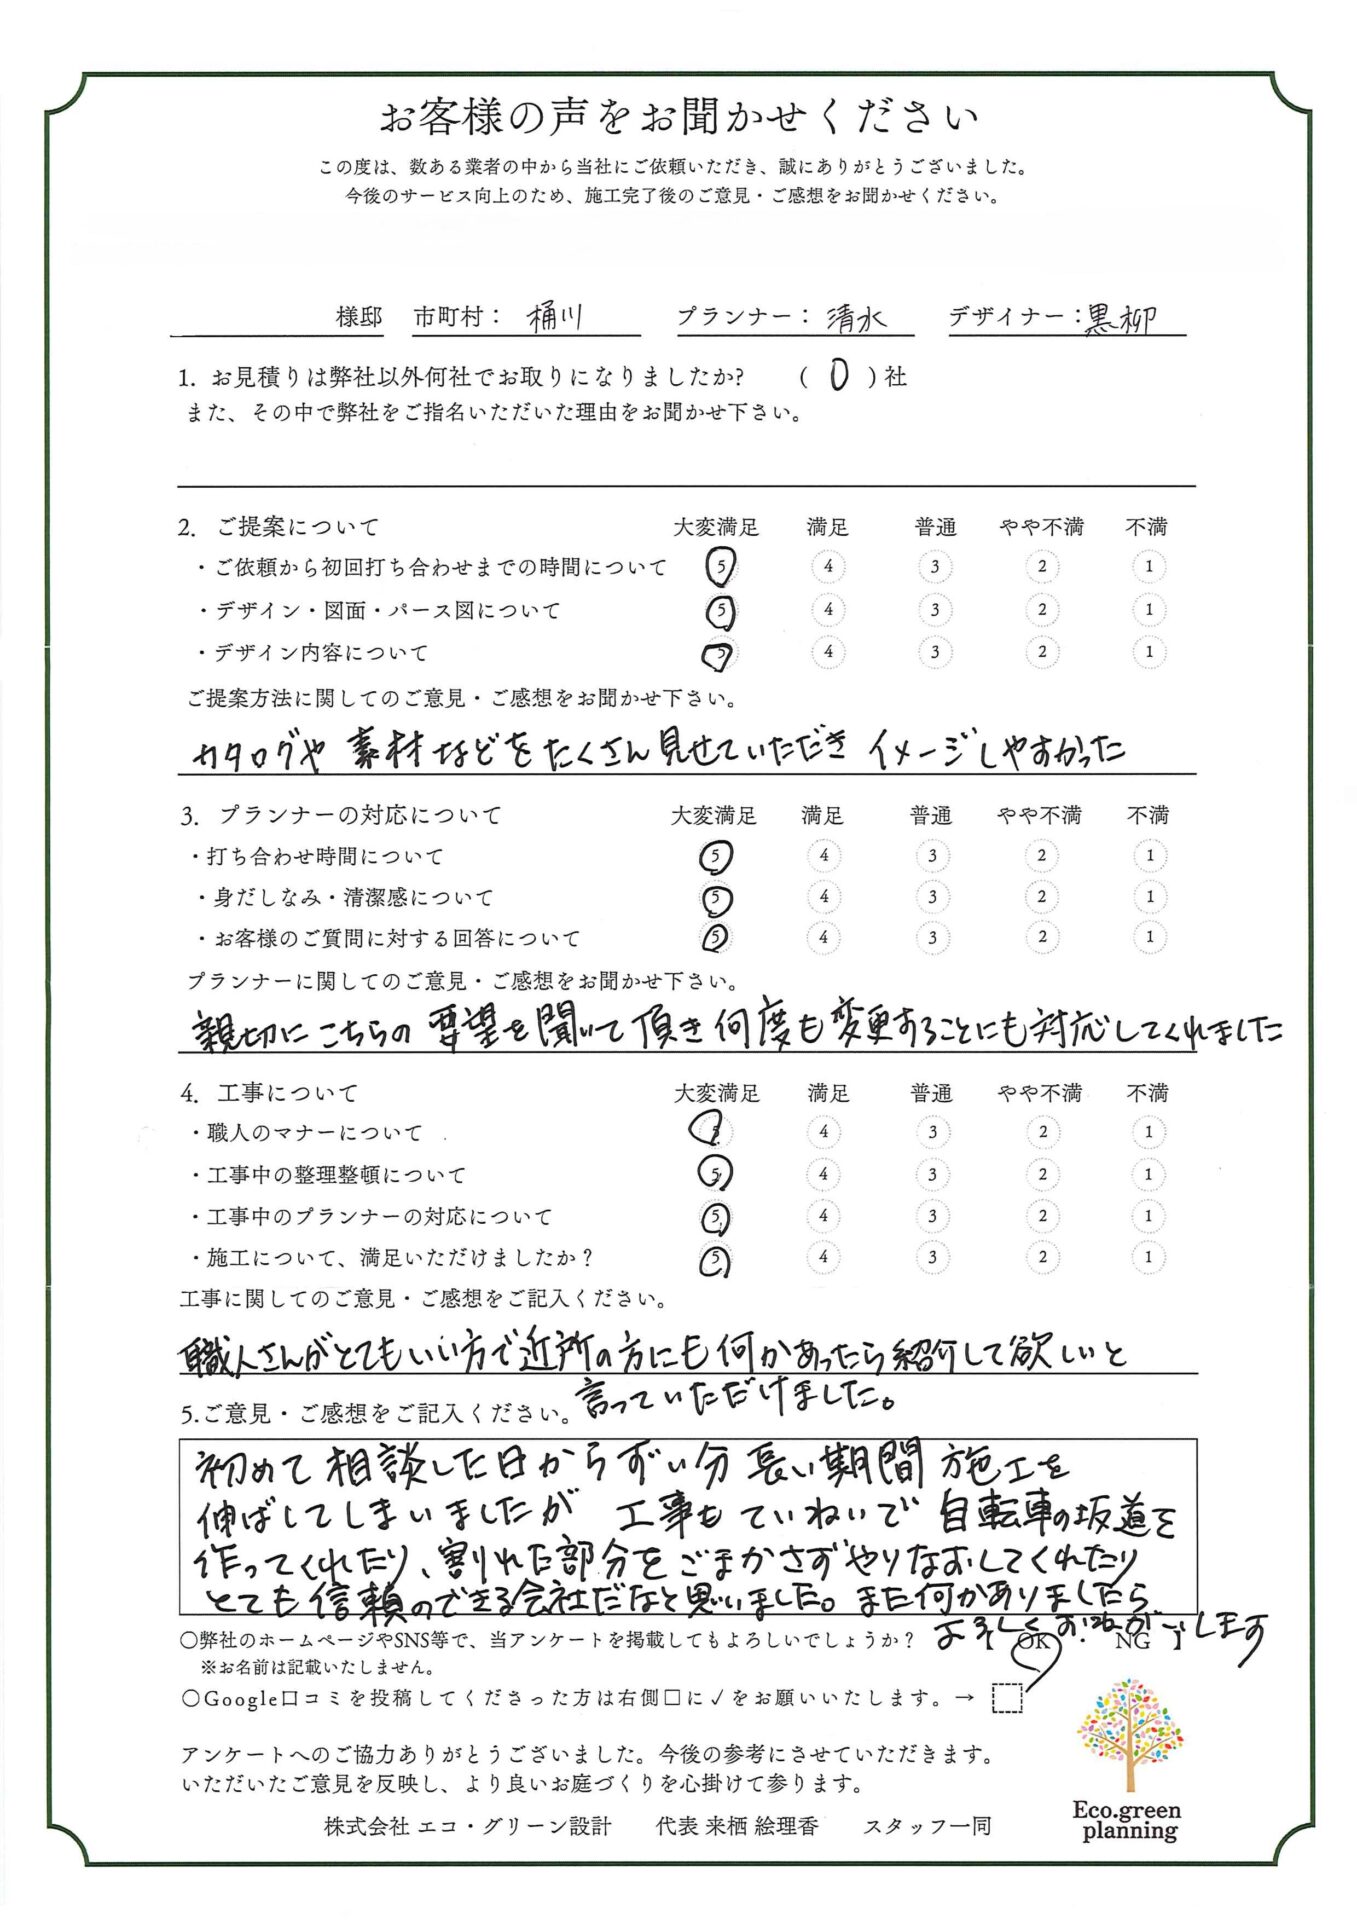 お客様の声をお聞かせください
この度は、数ある業者の中から当社にご依頼いただき、誠にありがとうございました。
今後のサービス向上のため、施工完了後のご意見・ご感想をお聞かせください。
様邸 市町村： 桶川 プランナー： 清水 デザイナー：黒柳
1. お見積りは弊社以外何社でお取りになりましたか? ( 0 )社
また、その中で弊社をご指名いただいた理由をお聞かせ下さい。
2. ご提案について 大変満足 満足 普通 やや不満 不満
・ご依頼から初回打ち合わせまでの時間について 5 4 3 2 1
・デザイン・図面・パース図について 5 4 3 2 1
・デザイン内容について 5 4 3 2 1
ご提案方法に関してのご意見・ご感想をお聞かせ下さい。
カタログや 素材などをたくさん見せていただき イメージしやすかった
3. プランナーの対応について 大変満足 満足 普通 やや不満 不満
・打ち合わせ時間について 5 4 3 2 1
・身だしなみ・清潔感について 5 4 3 2 1
・お客様のご質問に対する回答について 5 4 3 2 1
プランナーに関してのご意見・ご感想をお聞かせ下さい。
親切にこちらの 要望を聞いて頂き何度も変更することにも対応してくれました
4. 工事について 大変満足 満足 普通 やや不満 不満
・職人のマナーについて 5 4 3 2 1
・工事中の整理整頓について 5 4 3 2 1
・工事中のプランナーの対応について 5 4 3 2 1
・施工について、満足いただけましたか？ 5 4 3 2 1
工事に関してのご意見・ご感想をご記入ください。
職人さんがとてもいい方で近所の方にも何かあったら紹介して欲しいと
言っていただけました。
5.ご意見・ご感想をご記入ください。
初めて相談した日からずい分 長い期間 施工を
伸ばしてしまいましたが 工事もていねいで 自転車の坂道を
作ってくれたり、割れた部分をごまかさずやりなおしてくれたり
とても信頼のできる会社だなと思いました。また何かありましたら
よろしくお願いします
○弊社のホームページやSNS等で、当アンケートを掲載してもよろしいでしょうか？ 【 OK ・ NG 】
※お名前は記載いたしません。
○Google口コミを投稿してくださった方は右側□に✓をお願いいたします。→
アンケートへのご協力ありがとうございました。今後の参考にさせていただきます。
いただいたご意見を反映し、より良いお庭づくりを心掛けて参ります。
株式会社 エコ・グリーン設計 代表 来栖 絵理香 スタッフ一同
Eco.green
planning